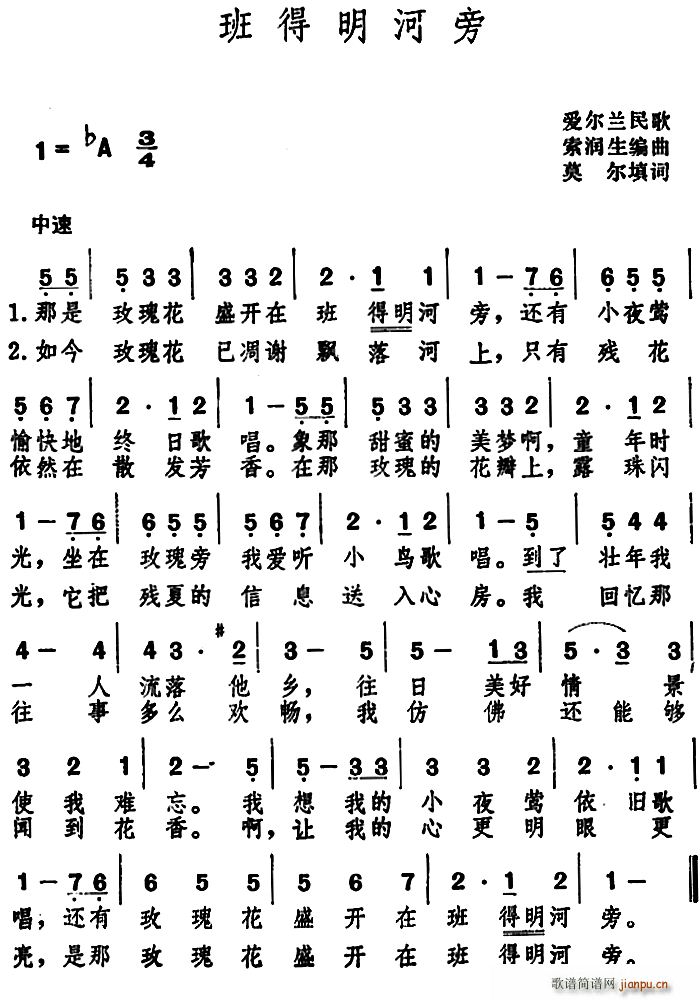 班得明河旁
爱尔兰民歌
1= ♭A 3/4
索润生编曲
莫 尔填词
中速
5 5 | 5 3 3 | 3 3 2 | 2 · 1 1 | 1 - 7 6 | 6 5 5 |
1.那是 玫瑰花 盛开在 班 得明河 旁，还有 小夜莺
2.如今 玫瑰花 已凋谢 飘 落河 上，只有 残花
5 6 7 | 2 · 1 2 | 1 - 5 5 | 5 3 3 | 3 3 2 | 2 · 1 1 |
愉快地 终 日歌 唱。象那 甜蜜的 美梦啊，童 年时
依然在 散 发芳 香。在那 玫瑰的 花瓣上，露 珠闪
1 - 7 6 | 6 5 5 | 5 6 7 | 2 · 1 2 | 1 - 5 | 5 4 4 |
光，坐在 玫瑰旁 我爱听 小 鸟歌 唱。到了 壮年我
光，它把 残夏的 信息 送 入心 房。我 回忆那
4 - 4 | 4 3 · #2 | 3 - 5 | 5 - 1 3 | 5 · 3 3 |
一 人 流落 他 乡，往 日 美好 情 景
往 事 多么 欢 畅，我 仿 佛 还 能 够
3 2 1 | 2 - 5 | 5 - 3 3 | 3 3 3 | 3 3 2 | 2 · 1 1 |
使 我 难 忘。我 想 我的 小 夜 莺 依 旧歌
闻 到 花 香。啊，让 我的 心 更 明 眼 更
1 - 7 6 | 6 5 5 | 5 5 5 | 5 6 7 | 2 · 1 2 | 1 - ‖
唱，还有 玫 瑰 花 盛 开 在 班 得明河 旁。
亮，是那 玫 瑰 花 盛 开 在 班 得明河 旁。
歌谱简谱网
jianpu.cn